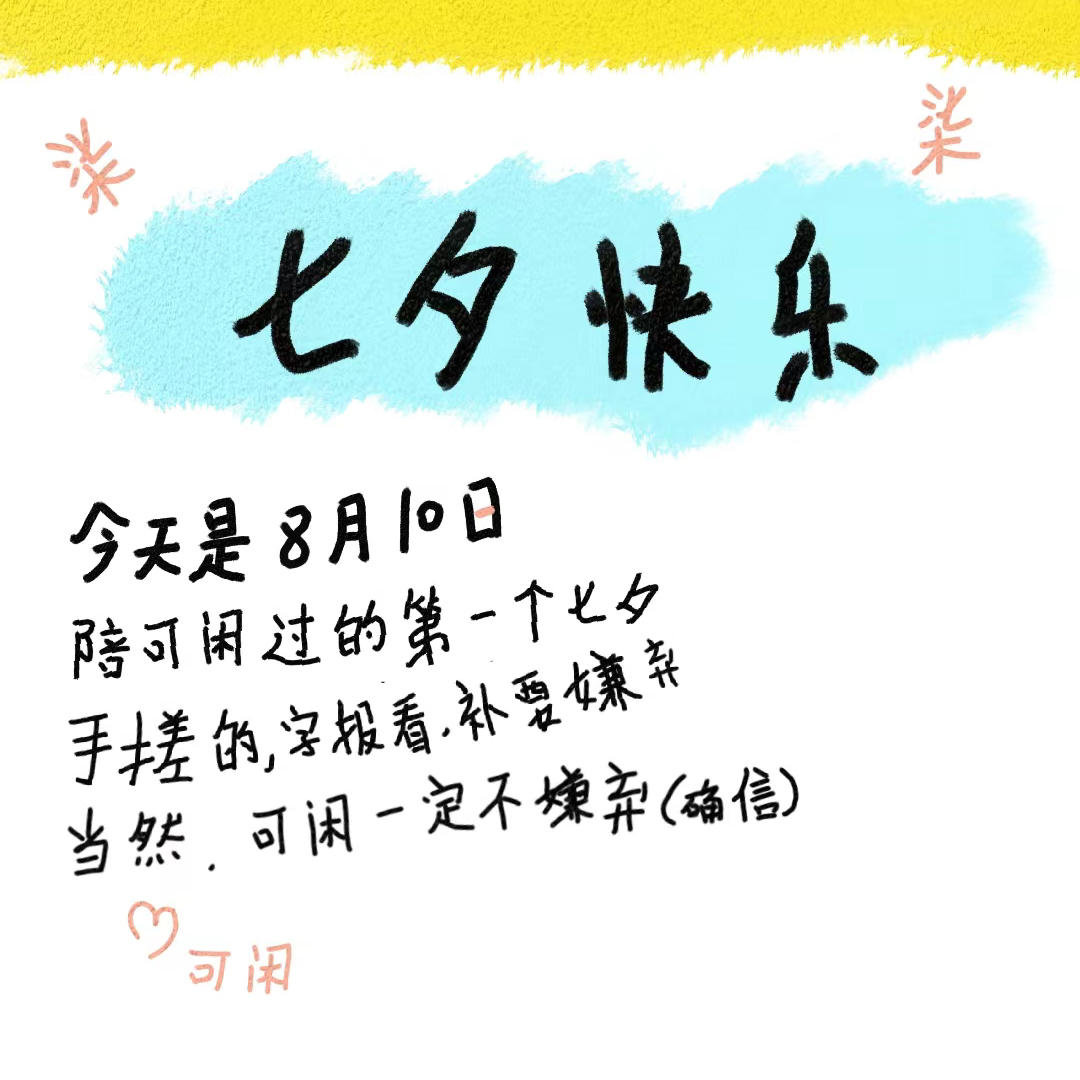 柒
柒
七夕快乐
今天是8月10日
陪可闲过的第一个七夕
手搓的,字报看.补要嫌弃
当然.可闲一定不嫌弃(确信)
可闲